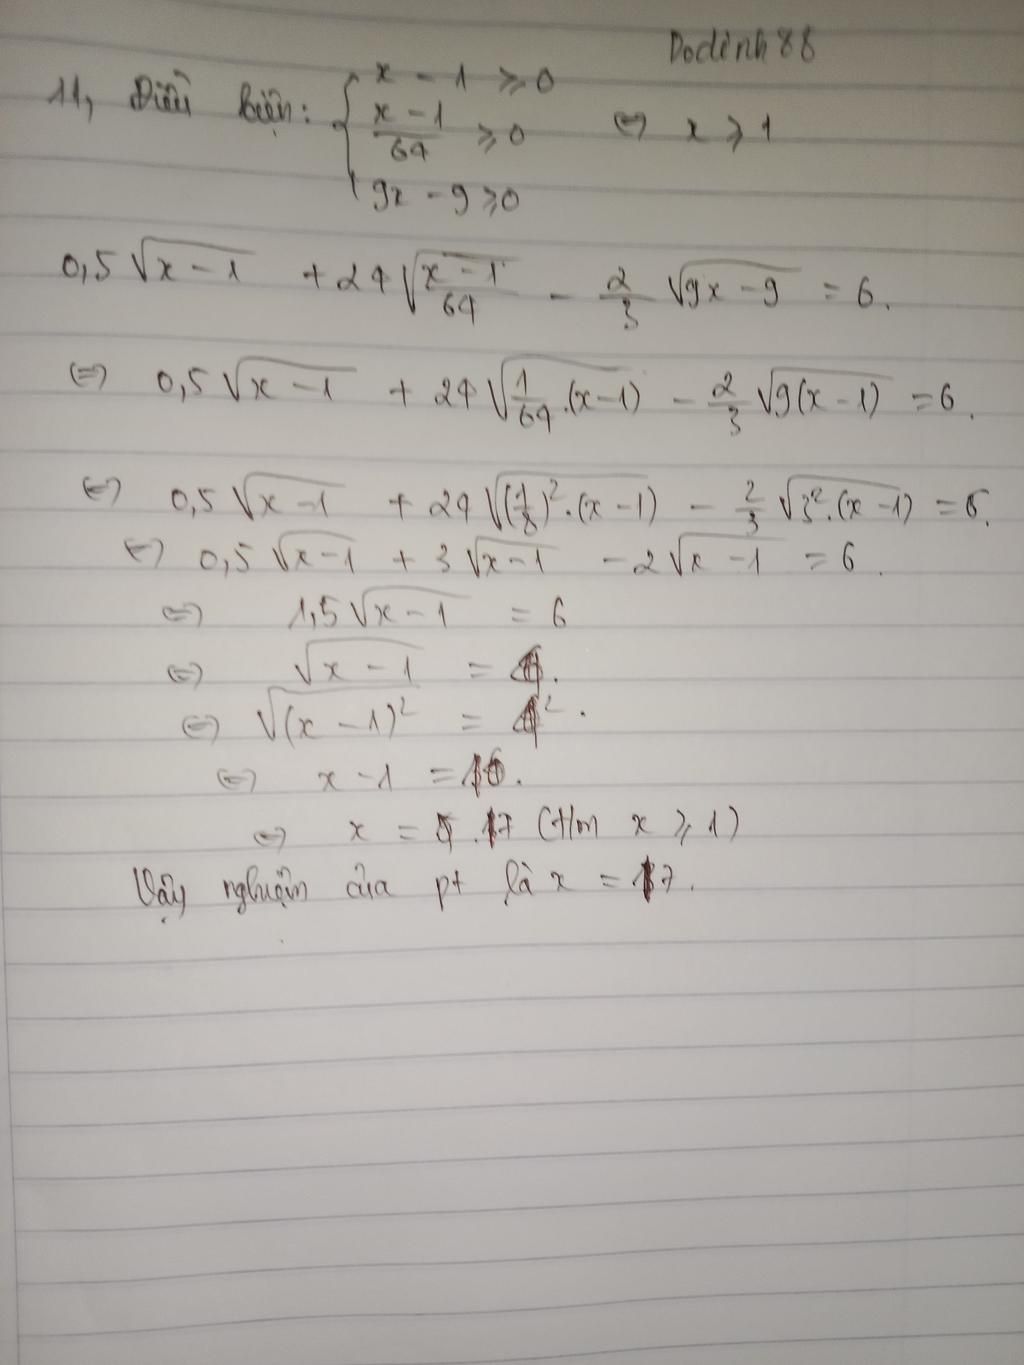 Dodinh88
11, Điều kiện: { x - 1 ≥ 0
x - 1 / 64 ≥ 0 ⇔ x ≥ 1
9x - 9 ≥ 0
0,5√(x - 1) + 24√((x - 1)/64) - 2/3 √(9x - 9) = 6.
⇔ 0,5√(x - 1) + 24√(1/64 .(x - 1)) - 2/3 √(9(x - 1)) = 6.
⇔ 0,5√(x - 1) + 24√((1/8)².(x - 1)) - 2/3 √(3².(x - 1)) = 6.
⇔ 0,5√(x - 1) + 3√(x - 1) - 2√(x - 1) = 6.
⇔ 1,5√(x - 1) = 6
⇔ √(x - 1) = 4.
⇔ √(x - 1)² = 4².
⇔ x - 1 = 16.
⇔ x = 17 (t/m x ≥ 1)
Vậy nghiệm của pt là x = 17.